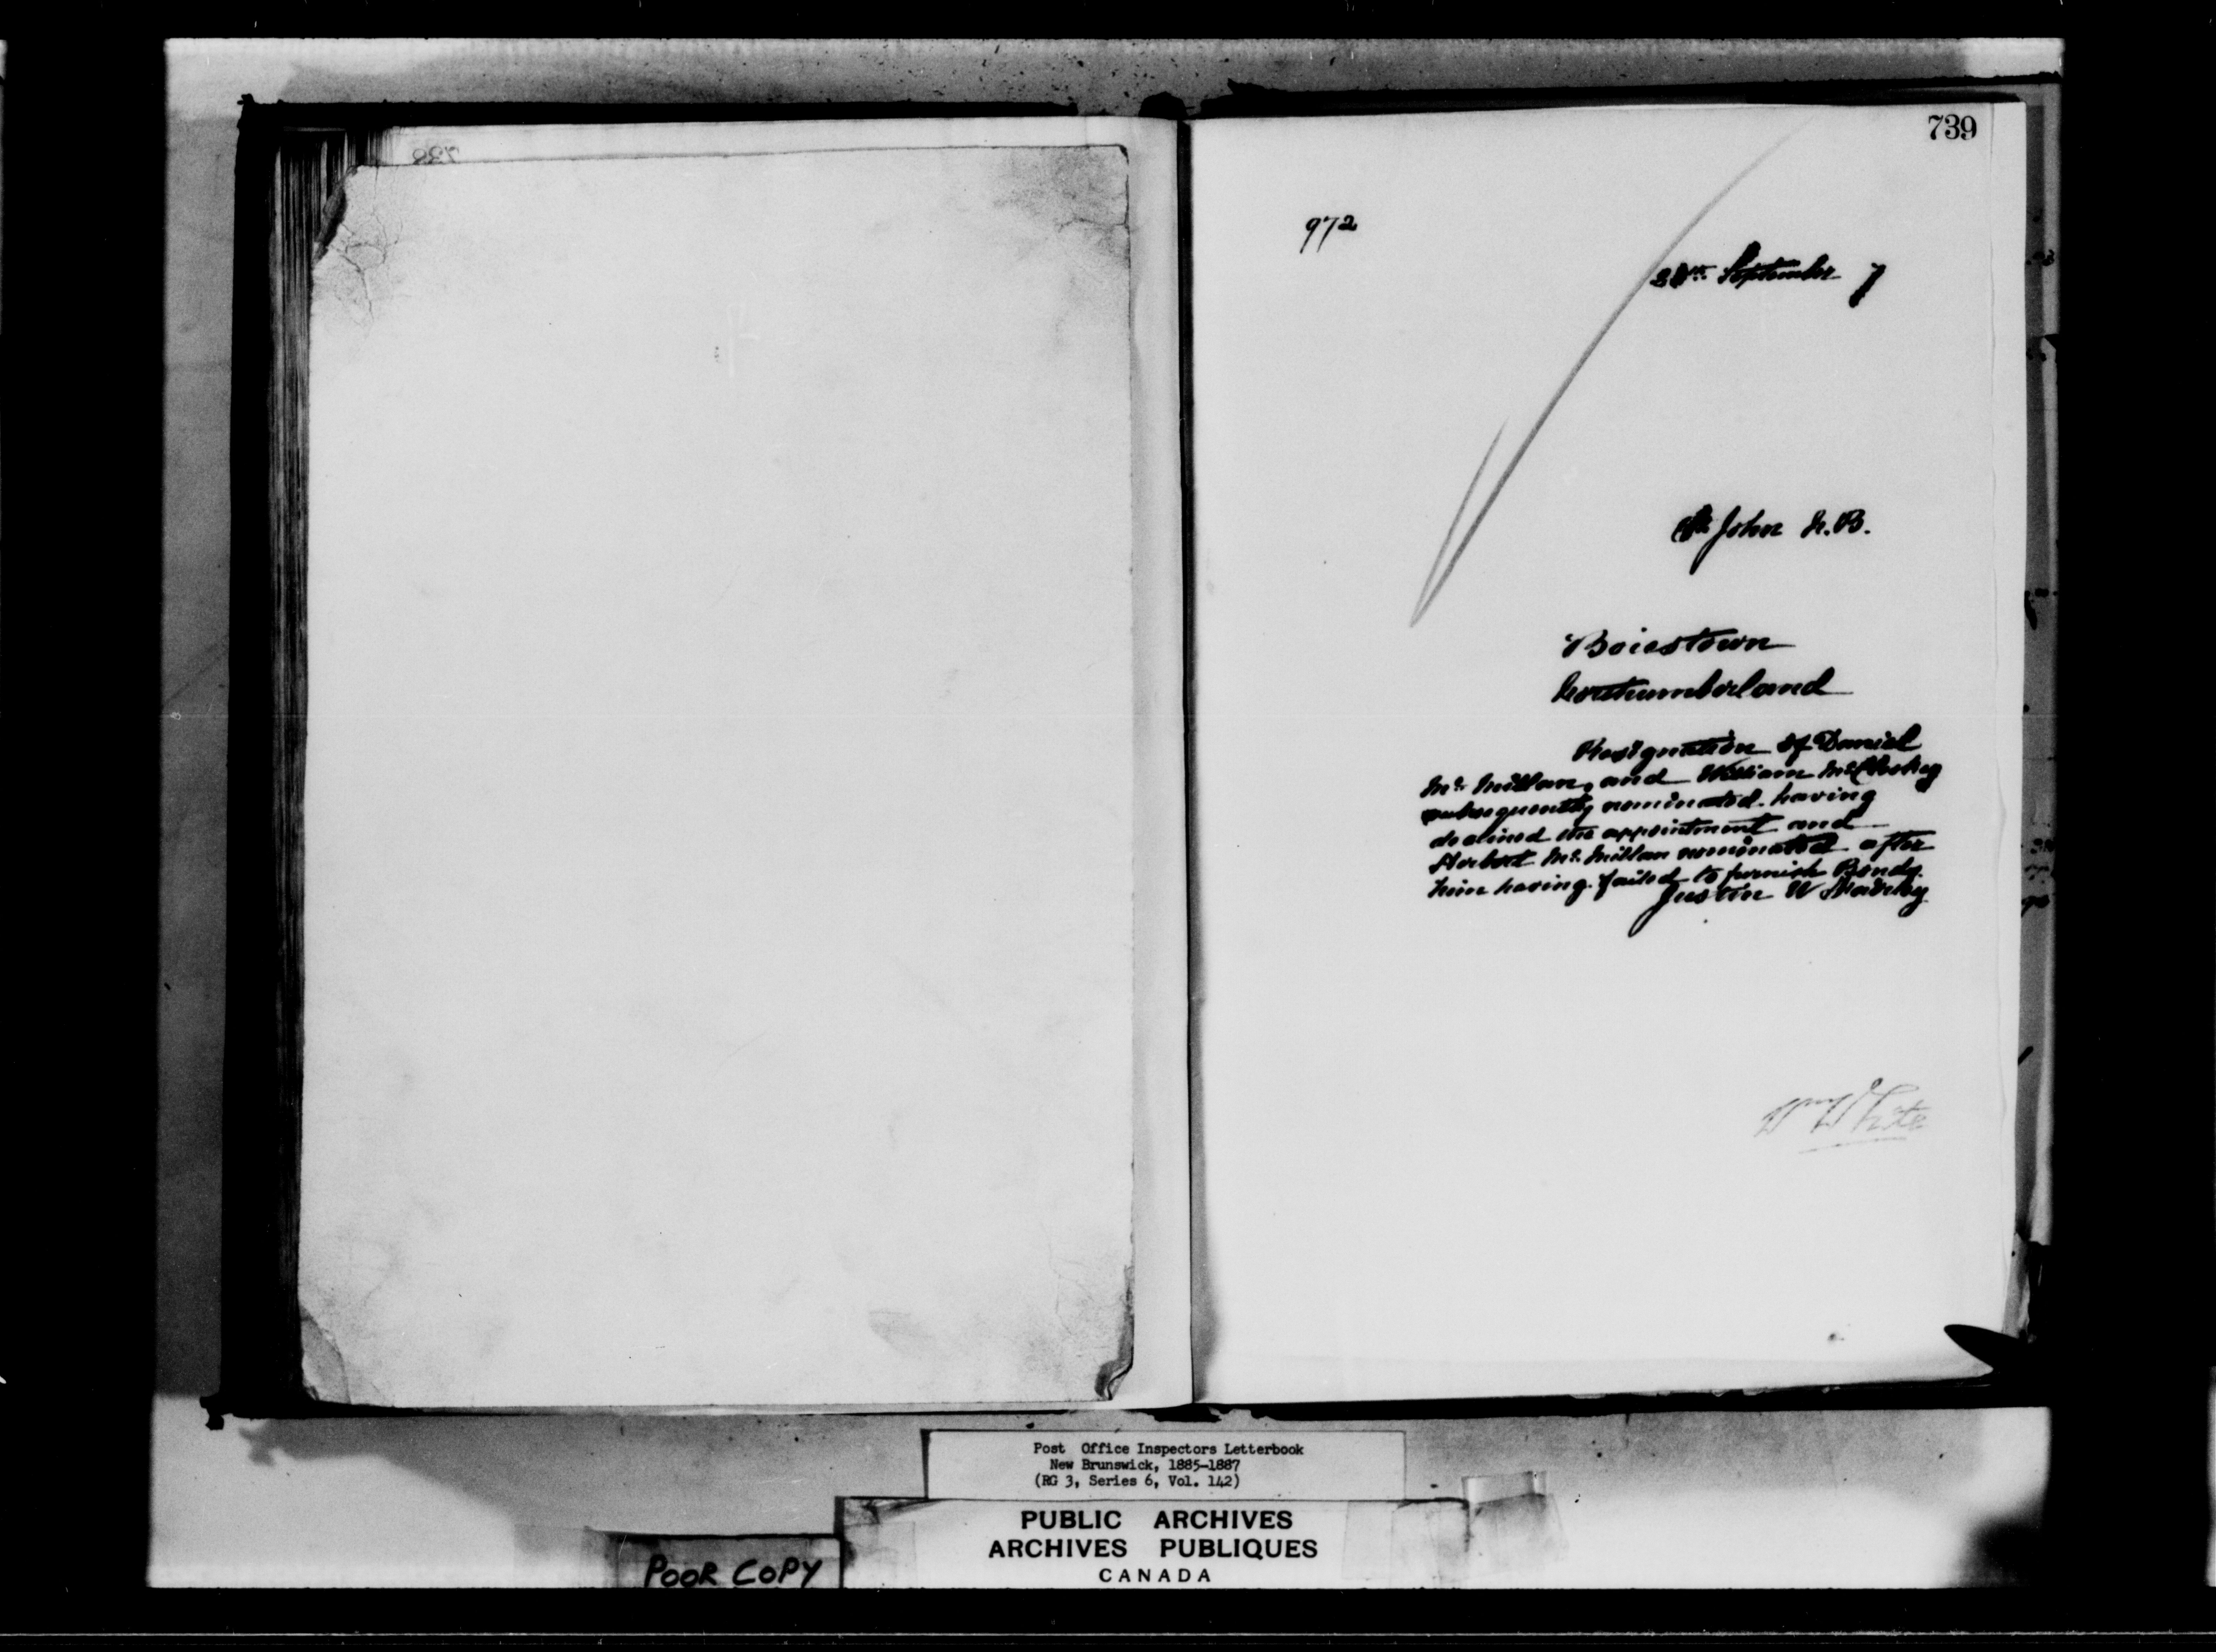 738
739
972
September 7
St John N.B.
Boiestown
Northumberland
Resignation of Daniel
McMillan, and William McCloskey
subsequently nominated having
declined the appointment and
Herbert McMillan nominated after
him having failed to furnish Bonds.
Justin W
Wm White
Post Office Inspectors Letterbook
New Brunswick, 1885-1887
(RG 3, Series 6, Vol. 142)
PUBLIC ARCHIVES
ARCHIVES PUBLIQUES
CANADA
POOR COPY